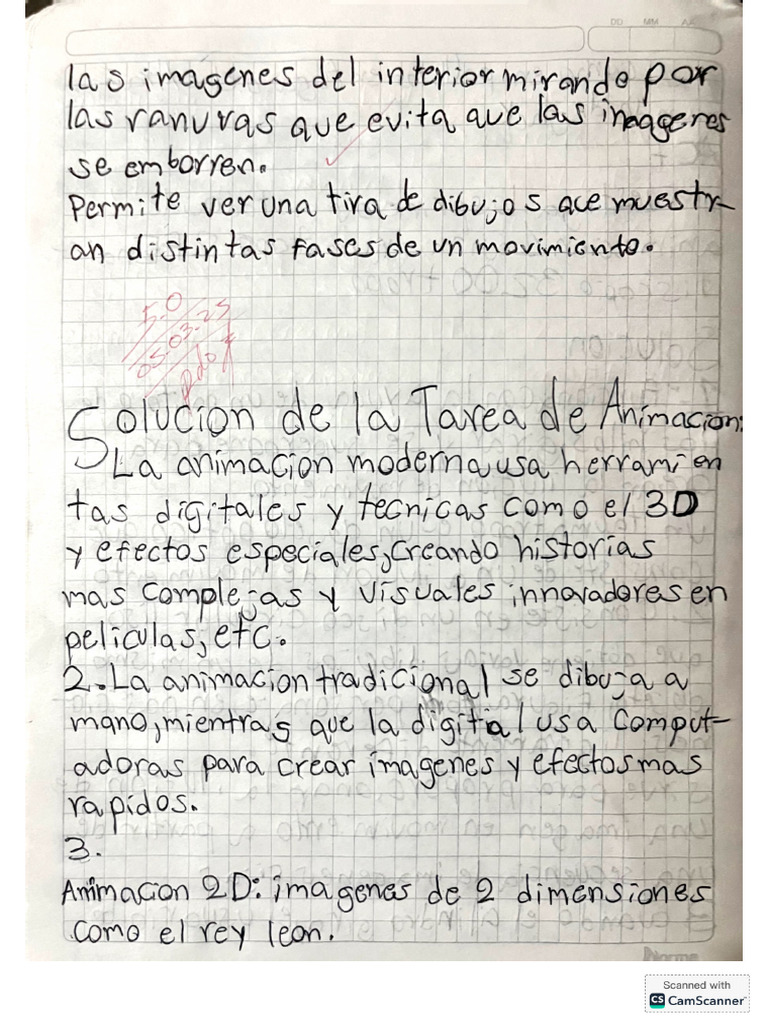 DD MM AA
las imagenes del interior mirando por
las ranuras que evita que las imageres
se emborren.
Permite ver una tira de dibujos que muestr-
an distintas fases de un movimiento.
5.0
05-03-25
Solucion de la Tarea de Animacion:
La animacion moderna usa herramien
tas digitales y tecnicas como el 3D
y efectos especiales, creando historias
mas complejas y visuales innovadores en
peliculas, etc.
2. La animacion tradicional se dibuja a
mano, mientras que la digital usa Comput-
adoras para crear imagenes y efectos mas
rapidos.
3.
Animacion 2D: imagenes de 2 dimensiones
como el rey leon.
Norma
Scanned with
CS CamScanner